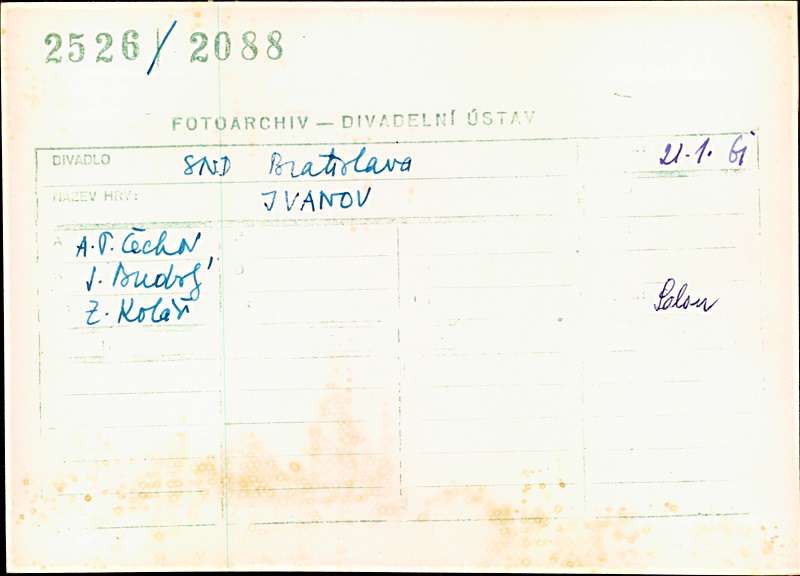 2526/2088
FOTOARCHIV — DIVADELNÍ ÚSTAV
DIVADLO SND Bratislava 21.1.61
NÁZEV HRY: IVANOV
A A.P. Čechov
J. Budský
Z. Kolář